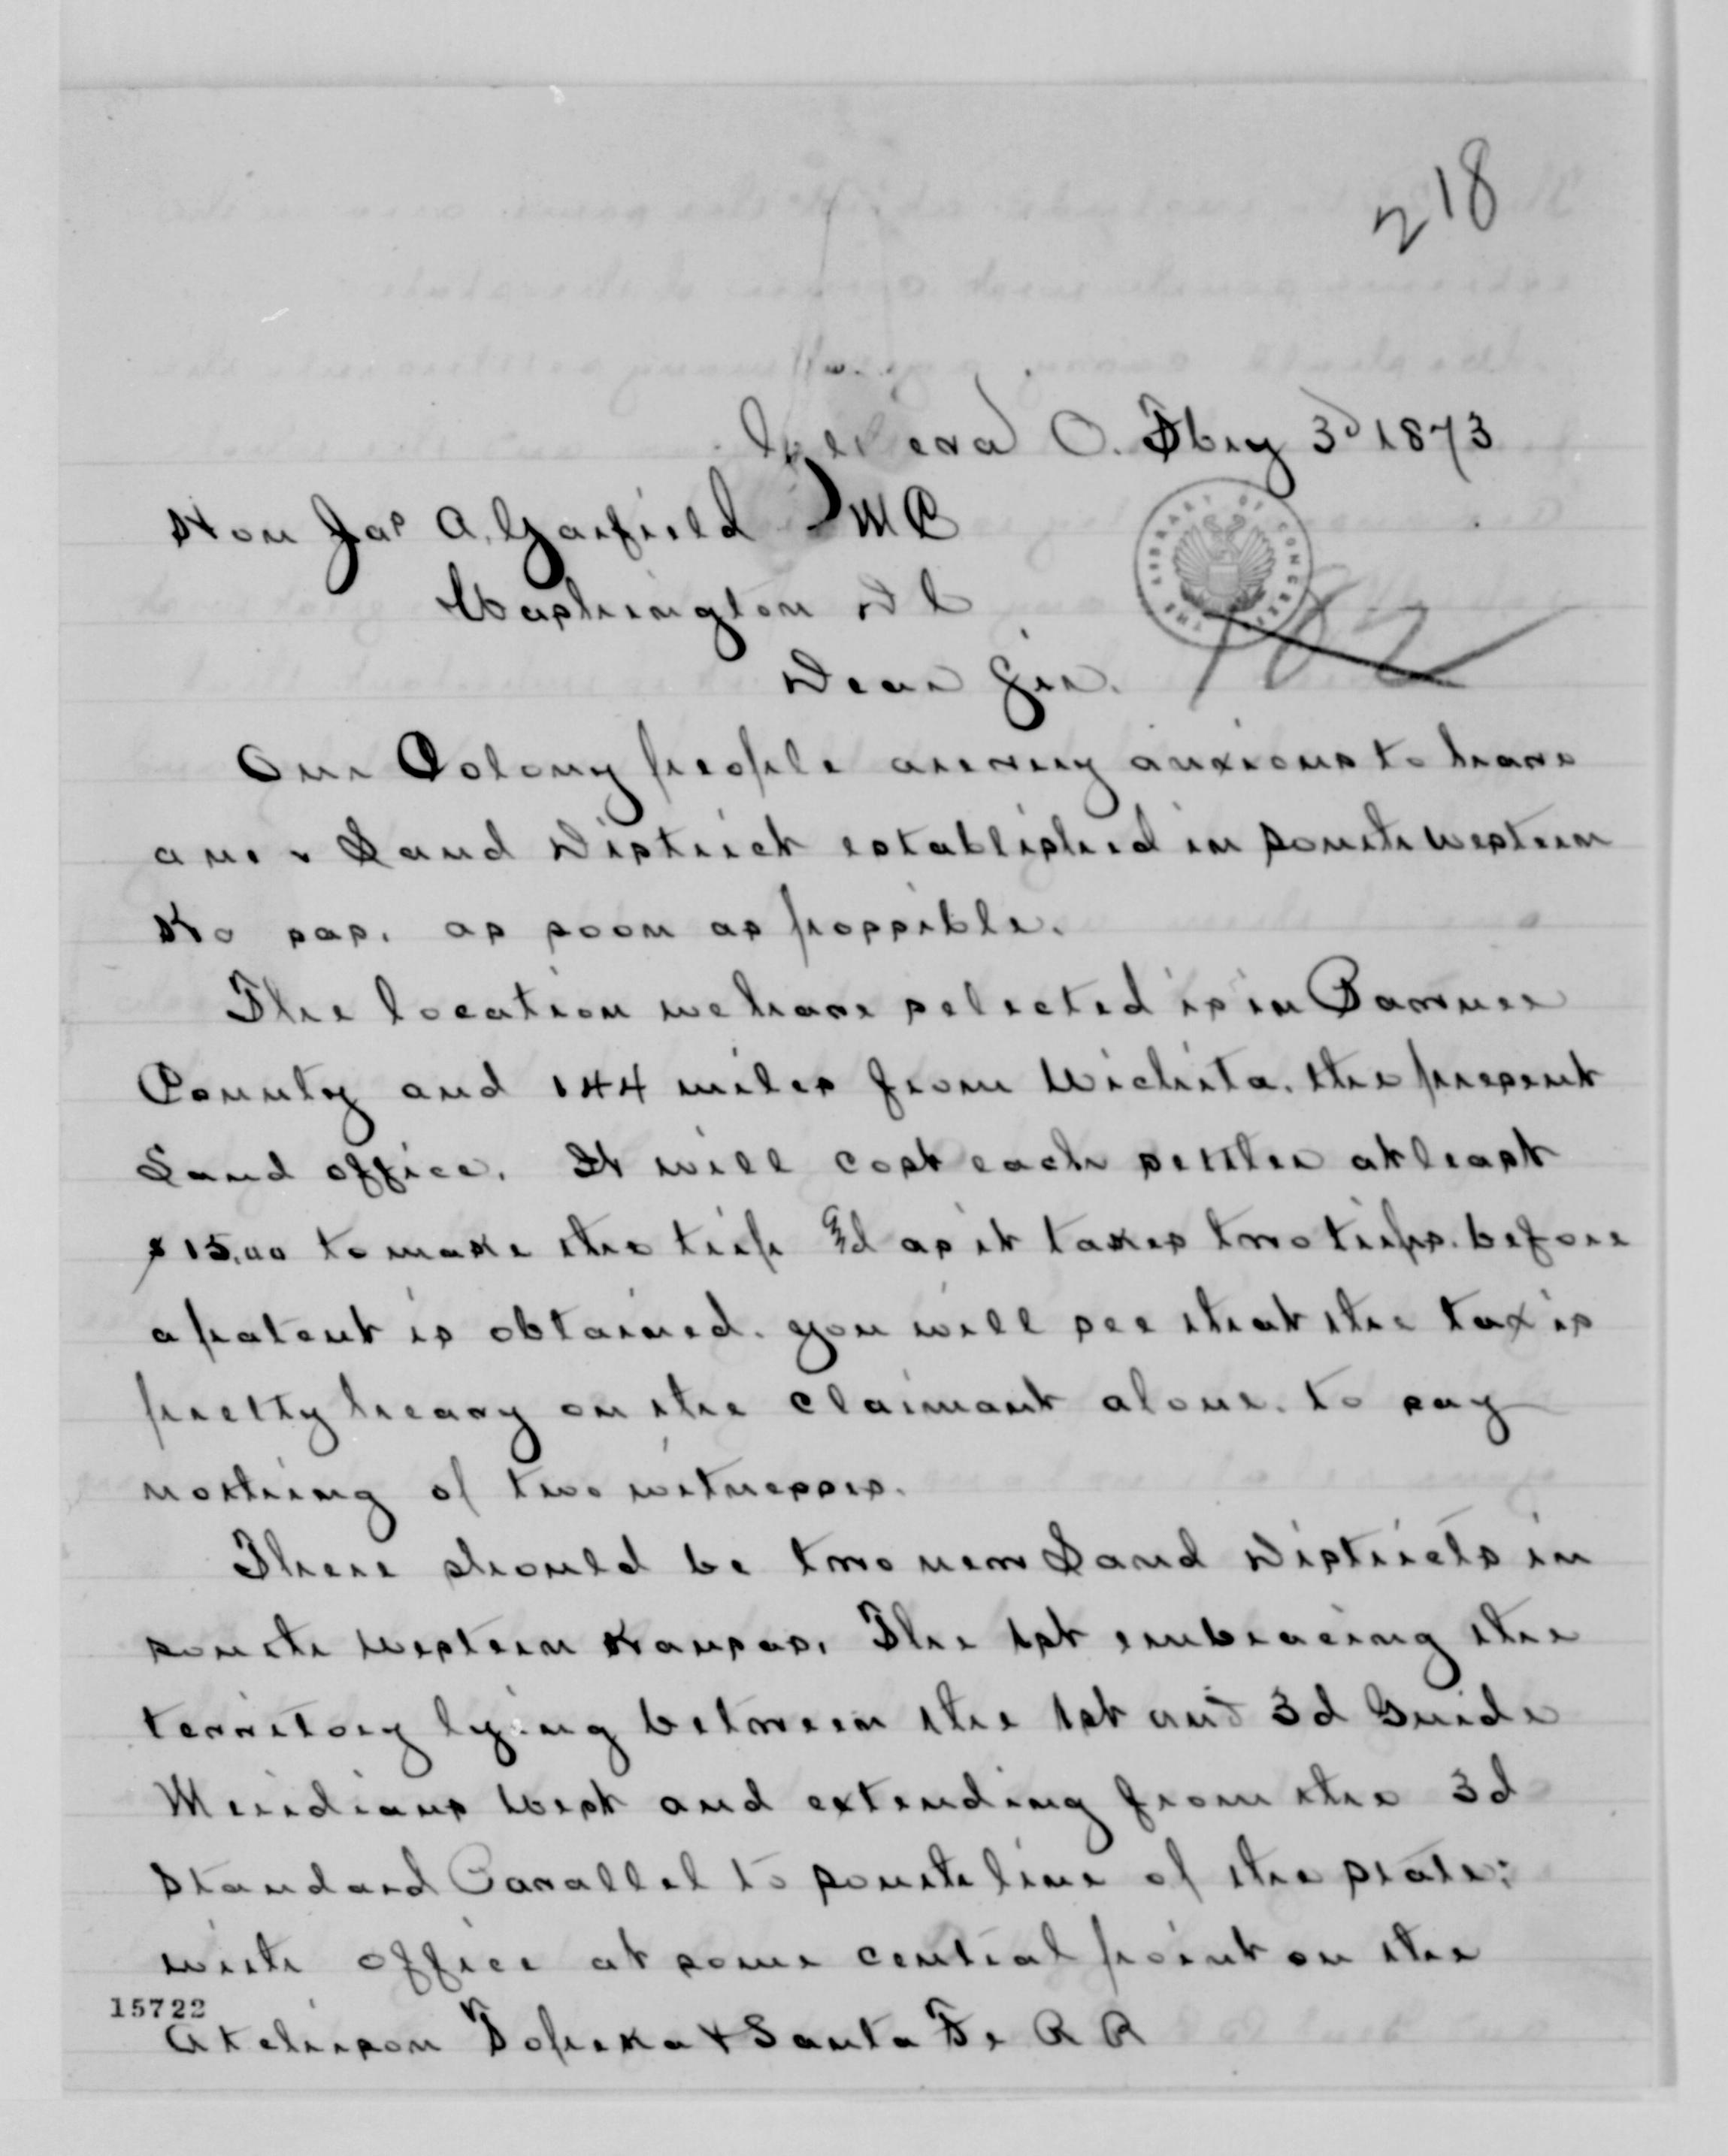 218
O. Fbry 3d 1873
Hon Jas A. Garfield M C
Washington D C
Dear Sir.
THE LIBRARY OF CONGRESS
102
Our Colony people are very anxious to have
a new Land District established in south western
Kansas. as soon as possible.
The location we have selected is in Pawnee
County and 144 miles from Wichita. the present
Land office. It will cost each settler at least
$15.00 to make the trip & as it takes two trips. before
a patent is obtained. you will see that the tax is
pretty heavy on the claimant alone. to say
nothing of two witnesses.
There should be two new Land Districts in
south western Kansas. The 1st embracing the
territory lying between the 1st and 3d Guide
Meridians West and extending from the 3d
Standard Parallel to south line of the state;
with office at some central point on the
15722
Atchison Topeka & Santa Fe R R